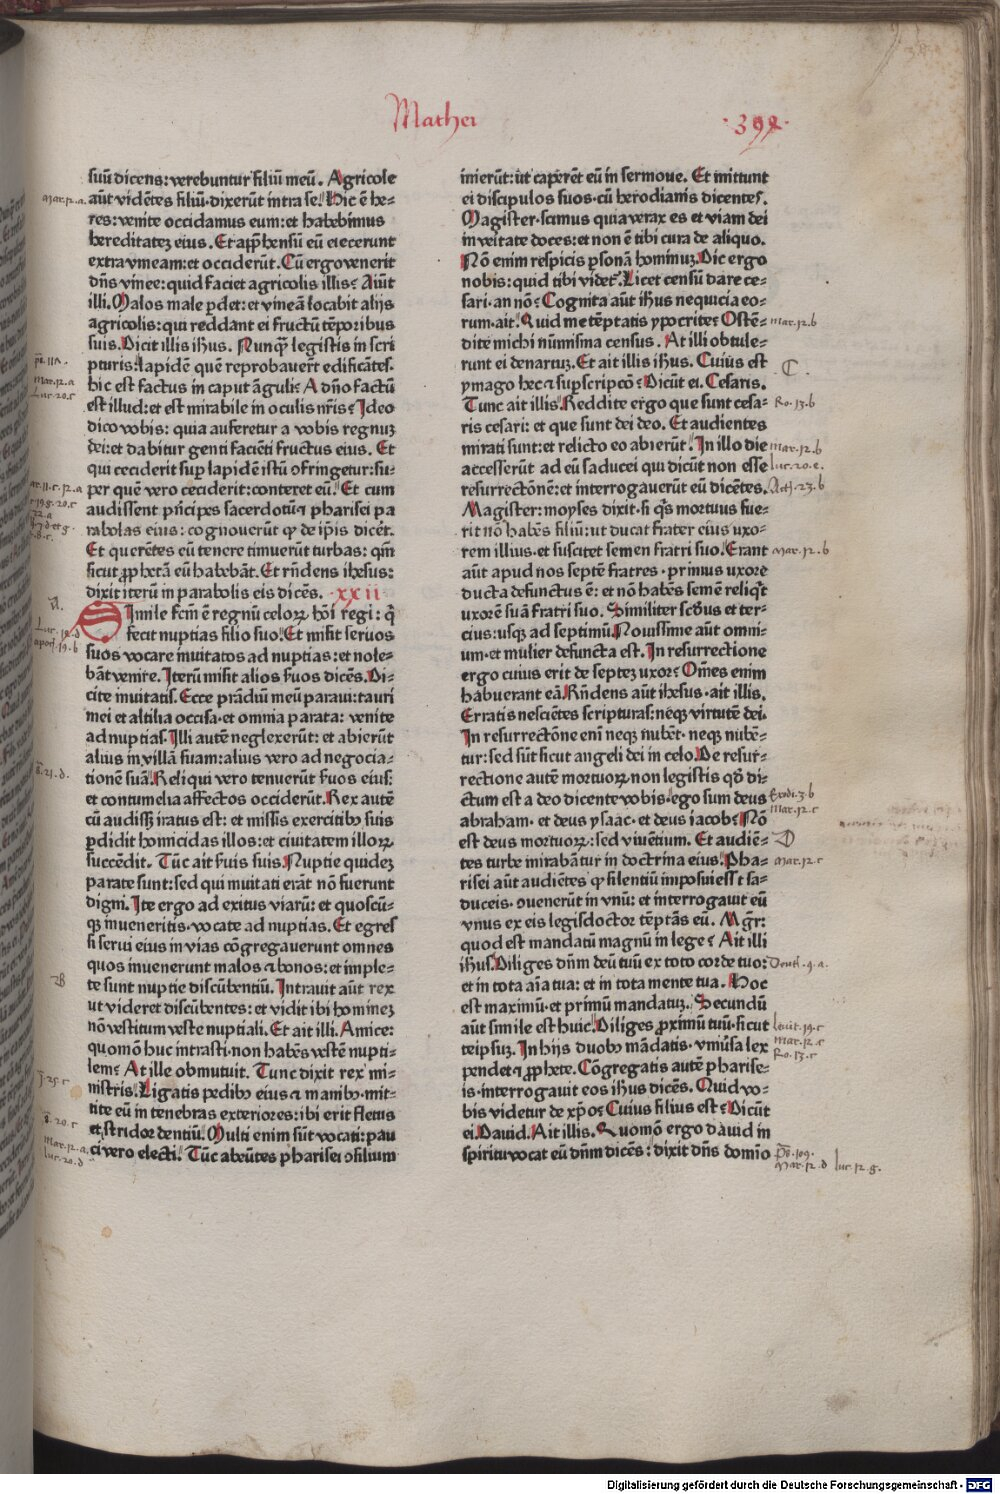 Mathei
·399·
suū dicens: verebuntur filiū meū. Agricole
aūt vidētes filiū·dixerūt intra se. Hic ē he⸗
res: venite occidamus eum: et habebimus
hereditateꝫ eius. Et app̄hensū eū eiecerunt
extra vineam: et occiderūt. Cū ergo venerit
dn̄s vinee: quid faciet agricolis illis? Aiūt
illi. Malos male ꝑdet: et vineā locabit alijs
agricolis: qui reddant ei fructū tēporibus
suis. Dicit illis ih̄us. Nunqͣꝫ legistis in scri
pturis: lapidē quē reprobauerūt edificātes·
hic est factus in caput āguli? A dn̄o factū
est illud: et est mirabile in oculis nr̄is? Ideo
dico vobis: quia auferetur a vobis regnuꝫ
dei: et dabitur genti faciēti fructus eius. Et
qui ceciderit suꝑ lapidē istū ↄfringetur: su⸗
per quē vero ceciderit: conteret eū. Et cum
audissent pͥncipes sacerdotū ⁊ pharisei pa
rabolas eius: cognouerūt ꝙ de ip̄is dicēt.
Et querētes eū tenere timuerūt turbas: qm̄
sicut ꝓphetā eū habebāt. Et rn̄dens ihesus:
dixit iterū in parabolis eis dicēs. xxii
Simile fcm̄ ē regnū celoꝝ hōi regi: q̇
fecit nuptias filio suo. Et misit seruos
suos vocare inuitatos ad nuptias: et nole⸗
bāt venire. Iterū misit alios suos dicēs. Di⸗
cite inuitatis. Ecce prādiū meū paraui: tauri
mei et altilia occisa· et omnia parata: venite
ad nuptias. Illi autē neglexerūt: et abierūt
alius in villā suam: alius vero ad negocia⸗
tionē suā. Reliqui vero tenuerūt suos eius:
et contumelia affectos occiderūt. Rex autē
cū audisꝫ iratus est: et missis exercitibꝰ suis
ꝑdidit homicidas illos: et ciuitatem illoꝝ
succēdit. Tūc ait suis suis. Nuptie quideꝫ
parate sunt: sed qui inuitati erāt nō fuerunt
digni. Ite ergo ad exitus viarū: et quoscū⸗
qꝫ inueneritis· vocate ad nuptias. Et egres
si serui eius in vias cōgregauerunt omnes
quos inuenerunt malos ⁊ bonos: et imple⸗
te sunt nuptie discūbentiū. Intrauit aūt rex
ut videret discūbentes: et vidit ibi homineꝫ
nō vestitum veste nuptiali. Et ait illi. Amice:
quomō huc intrasti· non habēs vestē nupti⸗
lem? At ille obmutuit. Tunc dixit rex mi⸗
nistris. Ligatis pedibꝰ eius ⁊ manibꝰ· mit⸗
tite eū in tenebras exteriores: ibi erit fletus
et stridor dentiū. Multi enim sūt vocati: pau
ci vero electi. Tūc abeūtes pharisei ↄsilium
inierūt: ut caperēt eū in sermone. Et mittunt
ei discipulos suos· cū herodianis dicentes.
Magister· scimus quia verax es et viam dei
in veitate doces: et non ē tibi cura de aliquo.
Nō enim respicis ꝑsonā hominuꝫ. Dic ergo
nobis: quid tibi videt᷑. Licet censū dare ce⸗
sari· an nō? Cognita aūt ih̄us nequicia eo⸗
rum· ait. Quid me tēptatis ypocrite? Ostē⸗
dite michi nūmisma census. At illi obtule⸗
runt ei denariuꝫ. Et ait illis ih̄us. Cuius est
ymago hec ⁊ suꝑscripcō? Dicūt ei. Cesaris.
Tunc ait illis. Reddite ergo que sunt cesa⸗
ris cesari: et que sunt dei deo. Et audientes
mirati sunt: et relicto eo abierūt. In illo die
accesserūt ad eū saducei qui dicūt non esse
resurrectōnē: et interrogauerūt eū dicētes.
Magister: moyses dixit· si qͥs mortuus fue⸗
rit nō habēs filiū: ut ducat frater eius uxo⸗
rem illius· et suscitet semen fratri suo. Erant
aūt apud nos septē fratres· primus uxore
ducta defunctus ē: et nō habēs semē reliqͥt
uxorē suā fratri suo. Similiter scd̄us et ter⸗
cius: usqꝫ ad septimū. Nouissime aūt omni⸗
um· et mulier defuncta est. In resurrectione
ergo cuius erit de septeꝫ uxor? Om̄es enim
habuerant eā. Rn̄dens aūt ihesus· ait illis.
Erratis nesciētes scripturas: neqꝫ virtutē dei·
In resurrectōne eni᷒ neqꝫ nubēt· neqꝫ nubē⸗
tur: sed sūt sicut angeli dei in celo. De resur⸗
rectione autē mortuoꝝ non legistis qd̓ di⸗
ctum est a deo dicente vobis· ego sum deus
abraham· et deus ysaac· et deus iacob? Nō
est deus mortuoꝝ: sed viuētium. Et audiē⸗
tes turbe mirabātur in doctrina eius. Pha⸗
risei aūt audiētes ꝙ silentiū imposuiesst sa⸗
duceis· ↄuenerūt in vnū: et interrogauit eū
vnus ex eis legisdoctor tēptās eū. Mgr̄:
quod est mandatū magnū in lege? Ait illi
ih̄us. Diliges dn̄m deū tuū ex toto corde tuo:
et in tota aīa tua: et in tota mente tua. Hoc
est maximū· et primū mandatuꝫ. Secundū
aūt simile est huic. Diliges ꝓximū tuū· sicut
teipsuꝫ. In hijs duobꝰ mādatis· vniūsa lex
pendet ⁊ ꝓphete. Cōgregatis autē pharise⸗
is· interrogauit eos ih̄us dicēs. Quid vo⸗
bis videtur de xp̄o? Cuius filius est? Dicūt
ei. Dauid. Ait illis. Quomō ergo dauid in
spiritu vocat eū dn̄m dicēs: dixit dn̄s domīo
mar.12.a.
mar.12.a
Luc.20.c
A.
Luc.14.d
apoc.19.b
B
mar.12.a
luc.20.d
mar.12.b
C.
Ro.13.b
mar.12.b
luc.20.e.
Act.23.b
mar.12.b
Exodi.3.b
mar.12.c
D
mar.12.c
Deut.6.a.
leuit.19.c
mar.12.c
Ro.13.c
ps.109.
mar.12.d luc.12.g.
Digitalisierung gefördert durch die Deutsche Forschungsgemeinschaft - DFG